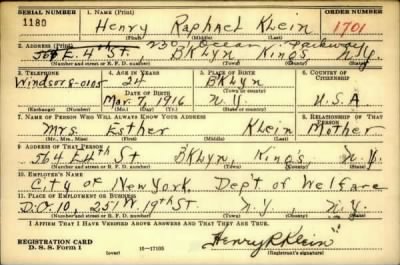 SERIAL NUMBER 1. NAME (Print) ORDER NUMBER
1180 Henry Raphael Klein 1701
(First) (Middle) (Last)
2. ADDRESS (Print) 230 Ocean Parkway
564 E. 4th St. BKLyn Kings N.Y.
(Number and street or R. F. D. number) (Town) (County) (State)
3. TELEPHONE 4. AGE IN YEARS 5. PLACE OF BIRTH 6. COUNTRY OF CITIZENSHIP
Windsor 8-0105 24 BKLyn
DATE OF BIRTH (Town or county)
Mar. 7, 1916 N.Y. U.S.A
(Exchange) (Number) (Mo.) (Day) (Yr.) (State or country)
7. NAME OF PERSON WHO WILL ALWAYS KNOW YOUR ADDRESS 8. RELATIONSHIP OF THAT PERSON
Mrs. Esther Klein Mother
(Mr., Mrs., Miss) (First) (Middle) (Last)
9. ADDRESS OF THAT PERSON
564 E 4th St BKLyn, King's N.Y.
(Number and street or R. F. D. number) (Town) (County) (State)
10. EMPLOYER'S NAME
City of New York, Dept of Welfare
11. PLACE OF EMPLOYMENT OR BUSINESS
D.O. 10, 251 W. 19th St. N.Y. N.Y.
(Number and street or R. F. D. number) (Town) (County) (State)
I AFFIRM THAT I HAVE VERIFIED ABOVE ANSWERS AND THAT THEY ARE TRUE.
REGISTRATION CARD
D. S. S. Form 1 16-17105 Henry R Klein
(over) (Registrant's signature)